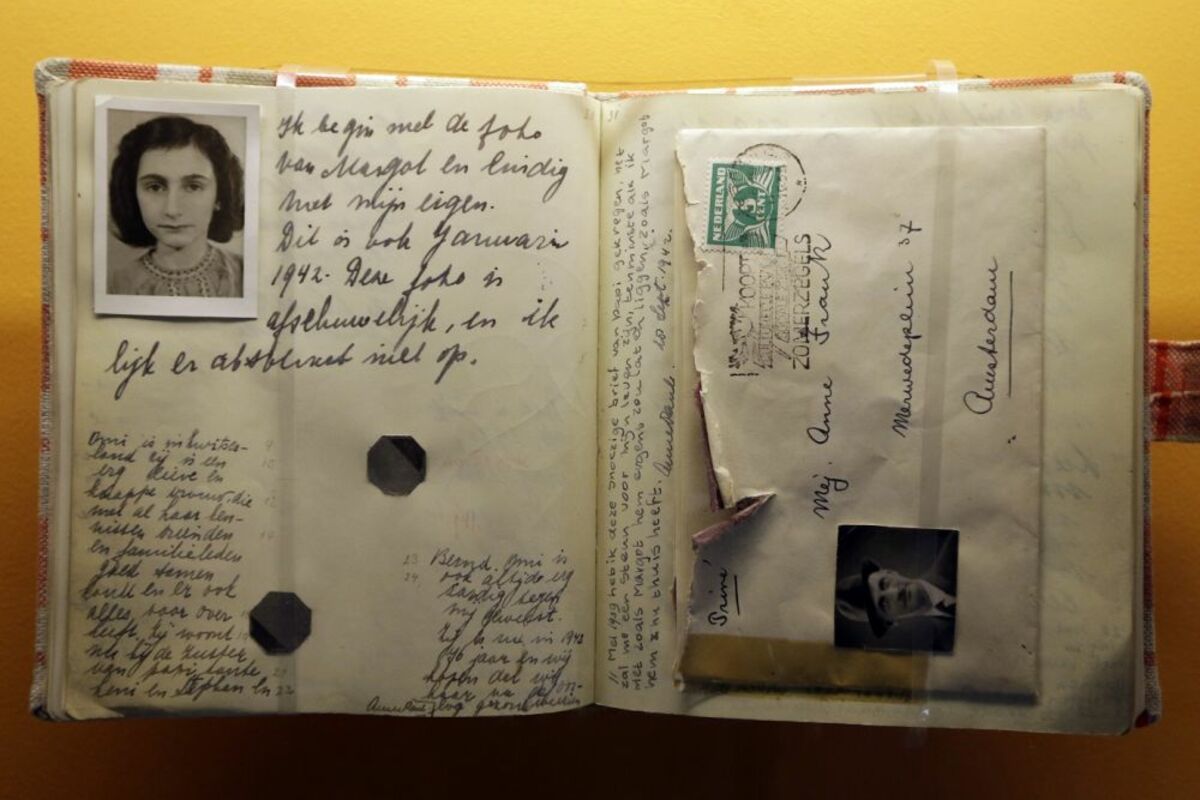 Ik begin met de foto
van Margot en eindig
met mijn eigen.
Dit is ook Januari
1942. Deze foto is
afschuwelijk, en ik
lijk er absoluut niet op.
Omi is in Zwitser-
land zij is een
erg lieve en
knappe vrouw, die
met al haar ken-
nissen vrienden
en familieleden
goed samen
en er ook
alles voor over
heeft. Zij woont
bij de zuster
van papi tante
Leni en Stephan en
23 Bernd. Omi is
24 ook altijd erg
aardig tegen
mij geweest.
Zij is nu in 1942
76 jaar en wij
hopen dat wij
haar na de oor-
log gezond
11 Mei 1939 heb ik deze snoezige brief van papi gekregen, het
zal me een steun voor mijn leven zijn, tenminste als ik
niet zoals Margot hem ergens zou laten liggen, zoals Margot
hem thuis heeft. Anne Frank. 10 Sept. 1942.
NEDERLAND
5
CENT
KOOPT
ZOMERZEGELS
Mej. Anne Frank
Merwedeplein 37
Amsterdam
Privé